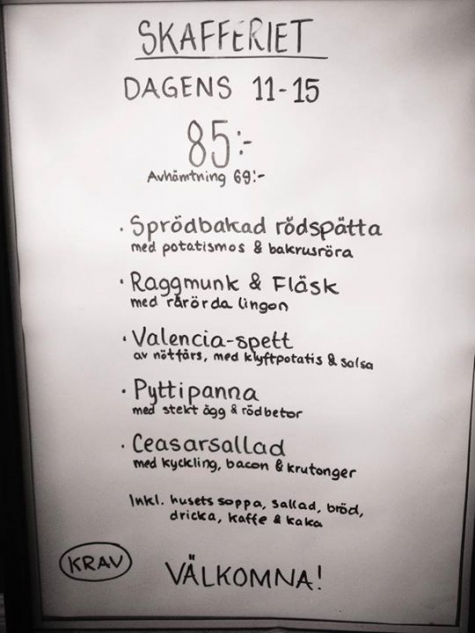 SKAFFERIET
DAGENS 11-15
85:-
Avhämtning 69:-
· Sprödbakad rödspätta
med potatismos & bakrusröra
· Raggmunk & Fläsk
med rårörda lingon
· Valencia-spett
av nötfärs, med klyftpotatis & salsa
· Pyttipanna
med stekt ägg & rödbetor
· Ceasarsallad
med kyckling, bacon & krutonger
Inkl. husets soppa, sallad, bröd,
dricka, kaffe & kaka
KRAV
VÄLKOMNA!